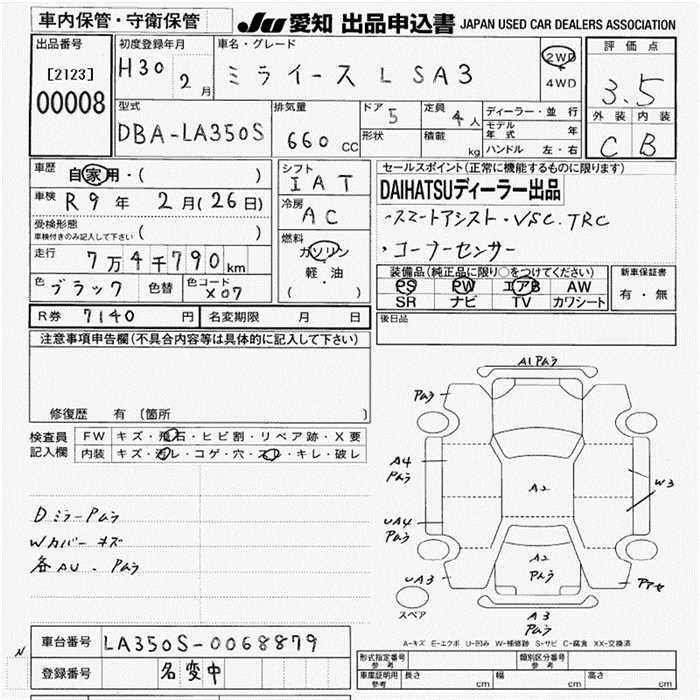 車内保管・守衛保管
JU 愛知 出品申込書 JAPAN USED CAR DEALERS ASSOCIATION
出品番号
[2123]
00008
初度登録年月
H30 2月
車名・グレード
ミライース L SA3
2WD
4WD
評価点
3.5
外装 内装
C B
型式
DBA-LA350S
排気量
660 CC
ドア 5
形状
定員 4人
積載 kg
ディーラー・並行
モデル年式 年
ハンドル 左・右
車歴
自家用・( )
車検
R9年 2月(26日)
受検形態
車検付きのみ記入して下さい ( )
走行
7万4千790km
色 ブラック 色替
色コード X07
シフト
IAT
冷房
AC
燃料
ガソリン
軽・油
( )
セールスポイント(正常に機能するものに限ります)
DAIHATSUディーラー出品
・スマートアシスト・VSC.TRC
・コーナーセンサー
装備品(純正品に限り○をつけてください)
PS PW エアB AW
SR ナビ TV カワシート
新車保証書
有・無
R券 7140円 名変期限 月 日
後日品
注意事項申告欄(不具合内容等は具体的に記入して下さい)
修復歴 有(箇所 )
検査員
記入欄
FW キズ・飛石・ヒビ割・リペア跡・X要
内装 キズ・汚レ・コゲ・穴・スレ・キレ・破レ
Dミラー Pムラ
Wカバー キズ
各AU. Pムラ
A1 Pムラ
Pムラ
A4
Pムラ
W3
A2
UA4
Pムラ
A2
Pムラ
UA3
スペア
A3
Pムラ
A-キズ E-エクボ U-凹み W-補修跡 S-サビ C-腐食 XX-交換済
N
車台番号 LA350S-0068879
登録番号 名変中
形式指定番号
参考
類別区分番号
参考
車庫証明用
参考
長さ cm 幅 cm 高さ cm